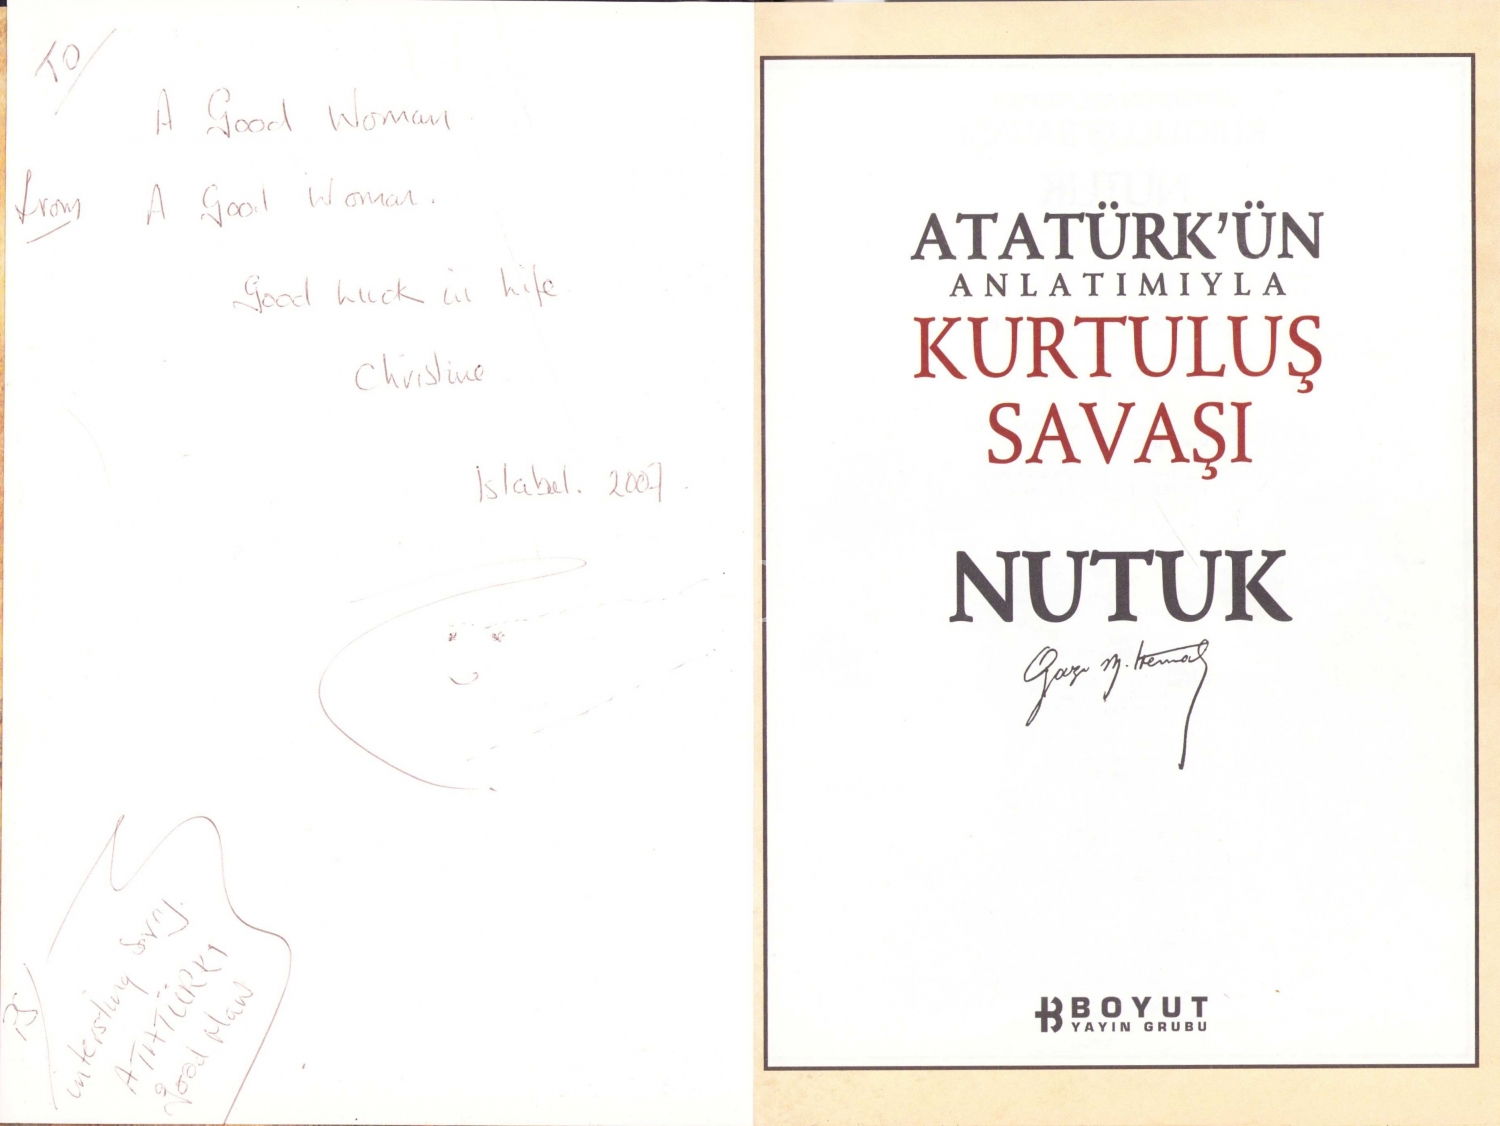 TO
A Good Woman
from A Good Woman.
Good Luck in Life
Christine
Istabul. 2007.
PS
intersting
ATATÜRK
Good Man
ATATÜRK’ÜN
ANLATIMIYLA
KURTULUŞ
SAVAŞI
NUTUK
Gazi M. Kemal
BOYUT
YAYIN GRUBU